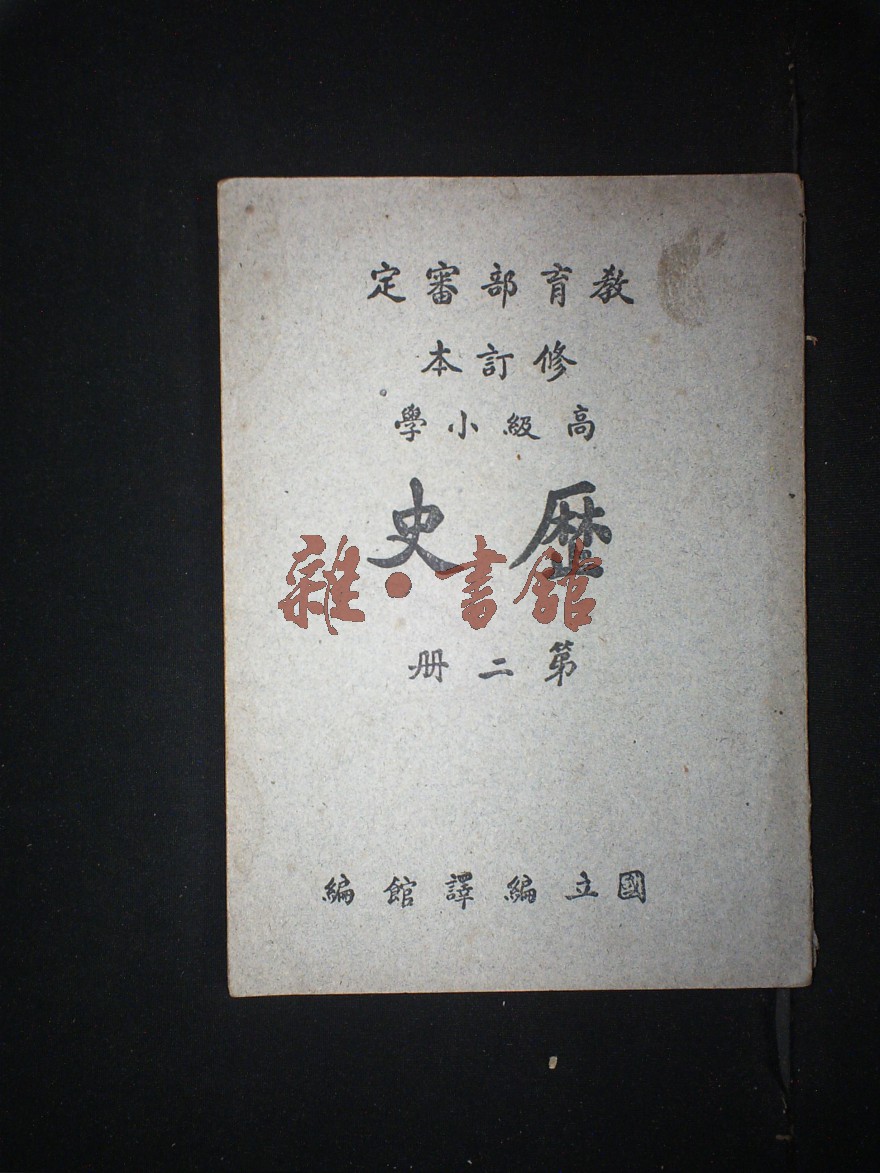 教育部審定
修訂本
高級小學
歷史
雜·書館
第二册
國立編譯館編